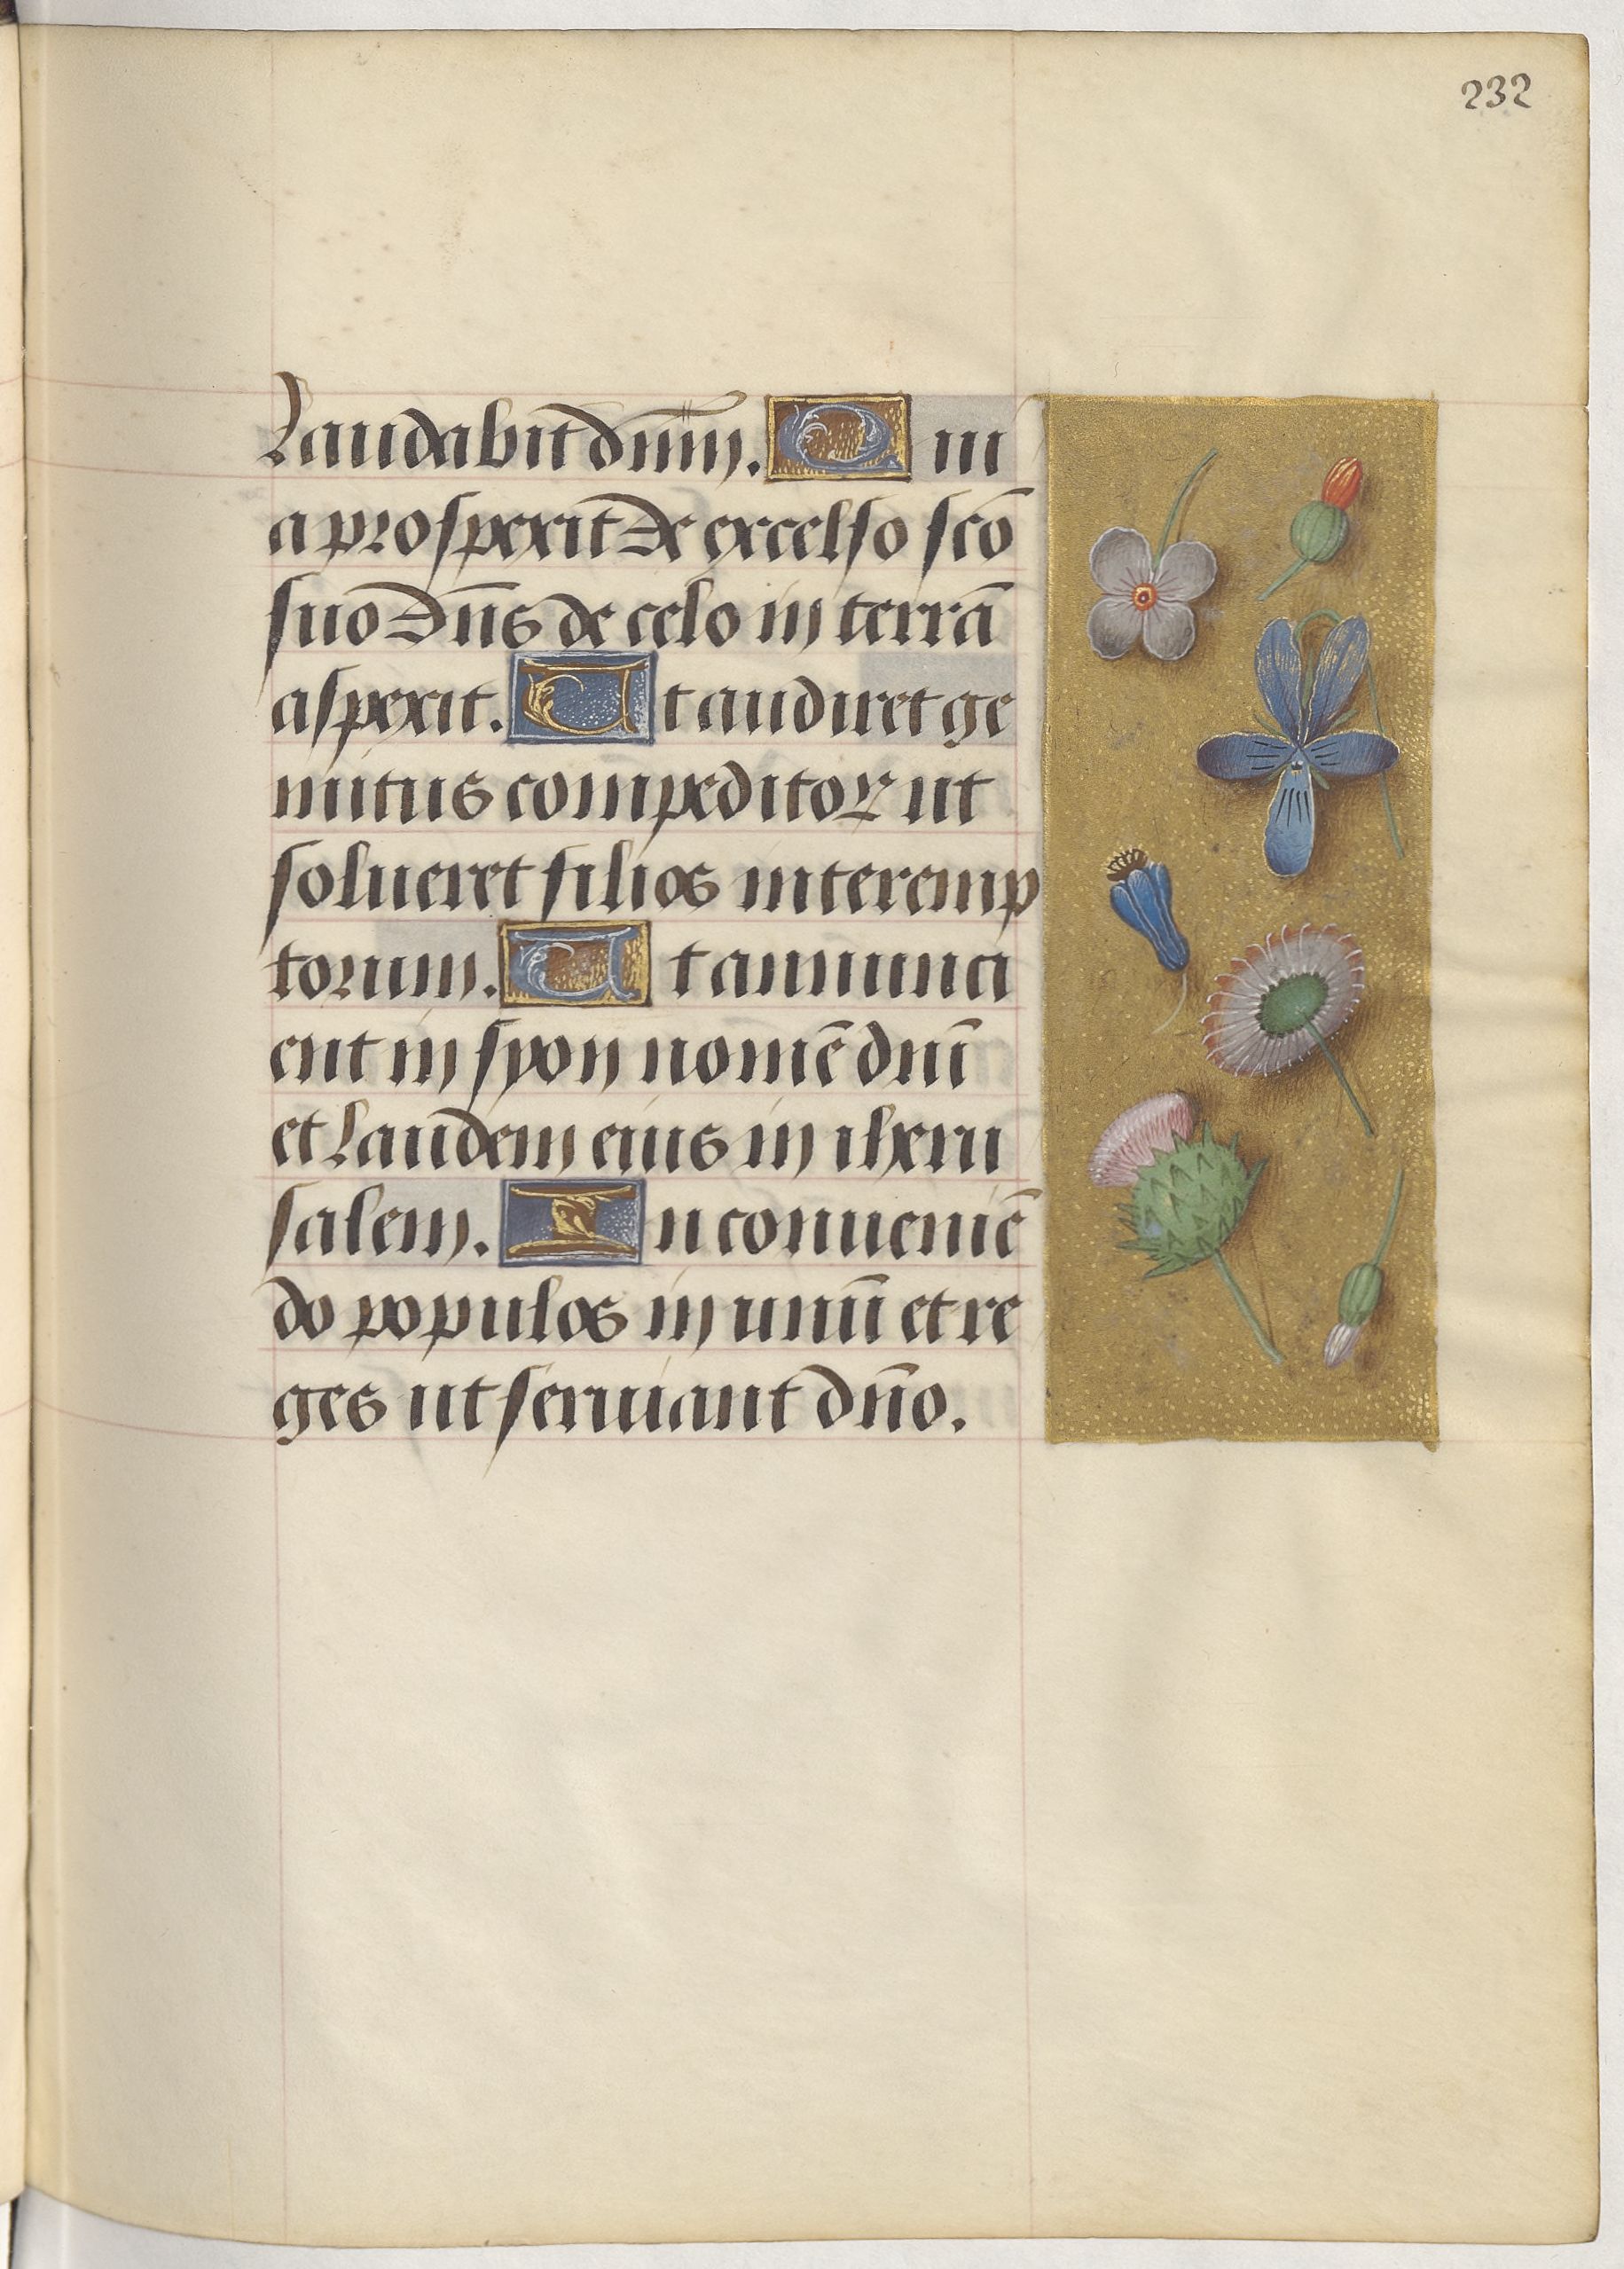 232
laudabit dnm̄. Qui
a prospexit de excelso sc̄o
suo dn̄s de celo in terrā
aspexit. Ut audiret ge
mitus compeditoꝝ ut
solueret filios interemp
torum. Ut annunci
ent in syon nomē dnī
et laudem eius in iheru
salem. In conueniē
do populos in unū et re
ges ut seruiant dn̄o.